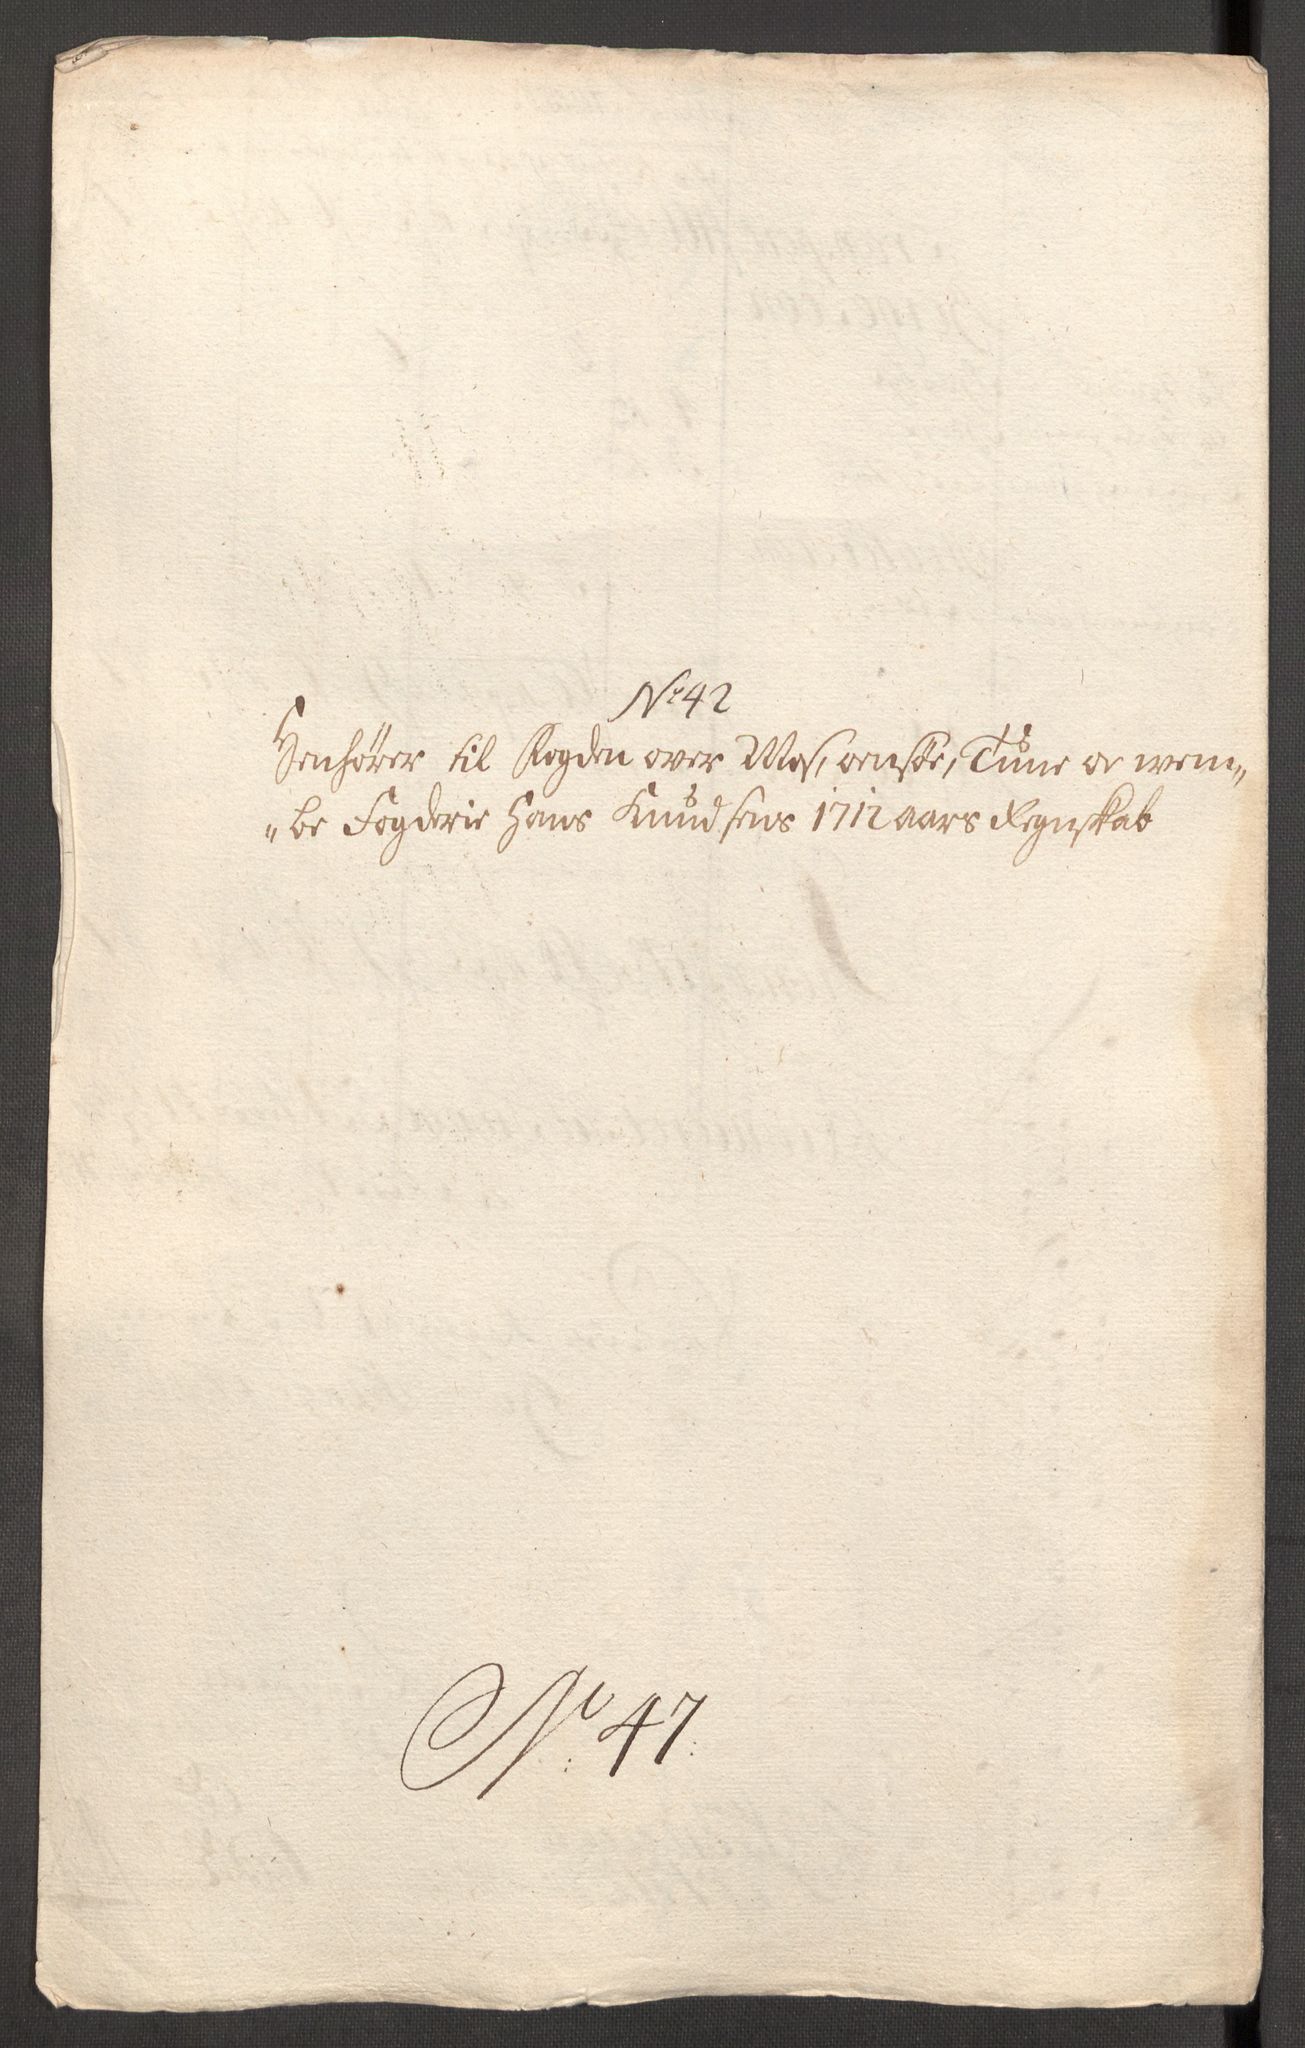 No 42
Henhörer til Fogden over Mos, oensöe, Tune oc wem„
„be Fogderie Hans Knudsens 1712 aars Regnskab
No: 47: